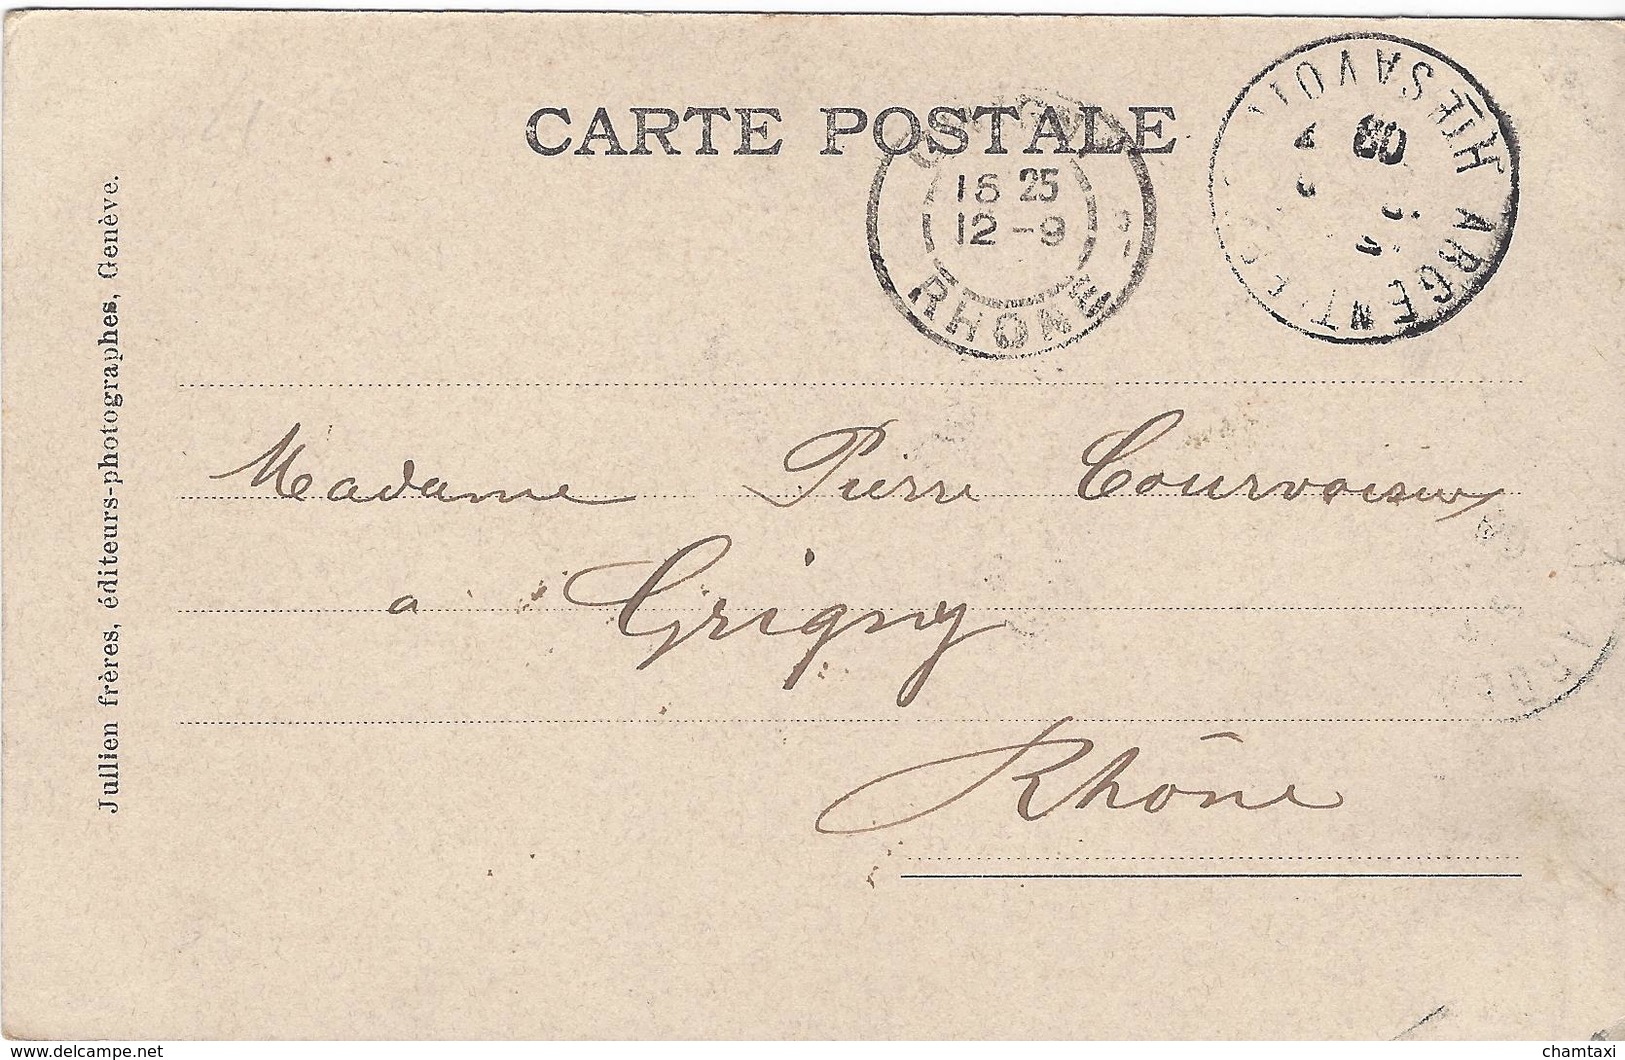 CARTE POSTALE
16 25
12-9
RHONE
HTE SAVOIE ARGENTIERE
Jullien frères, éditeurs-photographes, Genève.
Madame Pierre Courvoisier
a Grigny
Rhône
www.delcampe.net
chamtaxi